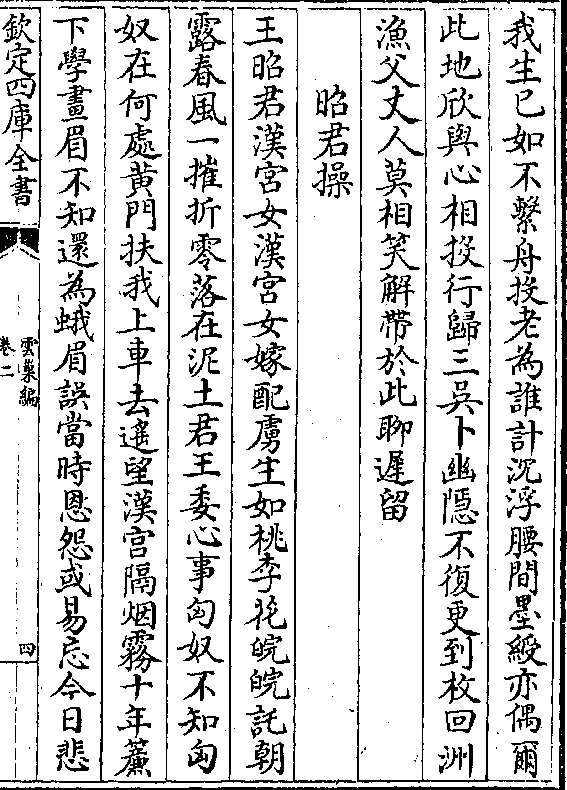 我生已如不繫舟投老為誰計沉浮腰間墨綬亦偶爾
此地欣與心相投行歸三吳卜幽隱不復更到枚回洲
漁父丈人莫相笑解帶於此聊遲留
昭君操
王昭君漢宮女漢宮女嫁配虜生如桃李花皖皖託朝
露春風一摧折零落在泥土君王委心事匈奴不知匈
奴在何處黃門扶我上車去遙望漢宮隔烟霧十年簾
下學畫眉不知還為蛾眉誤當時恩怨或易忘今日悲
欽定四庫全書
雲巢編
卷二
四